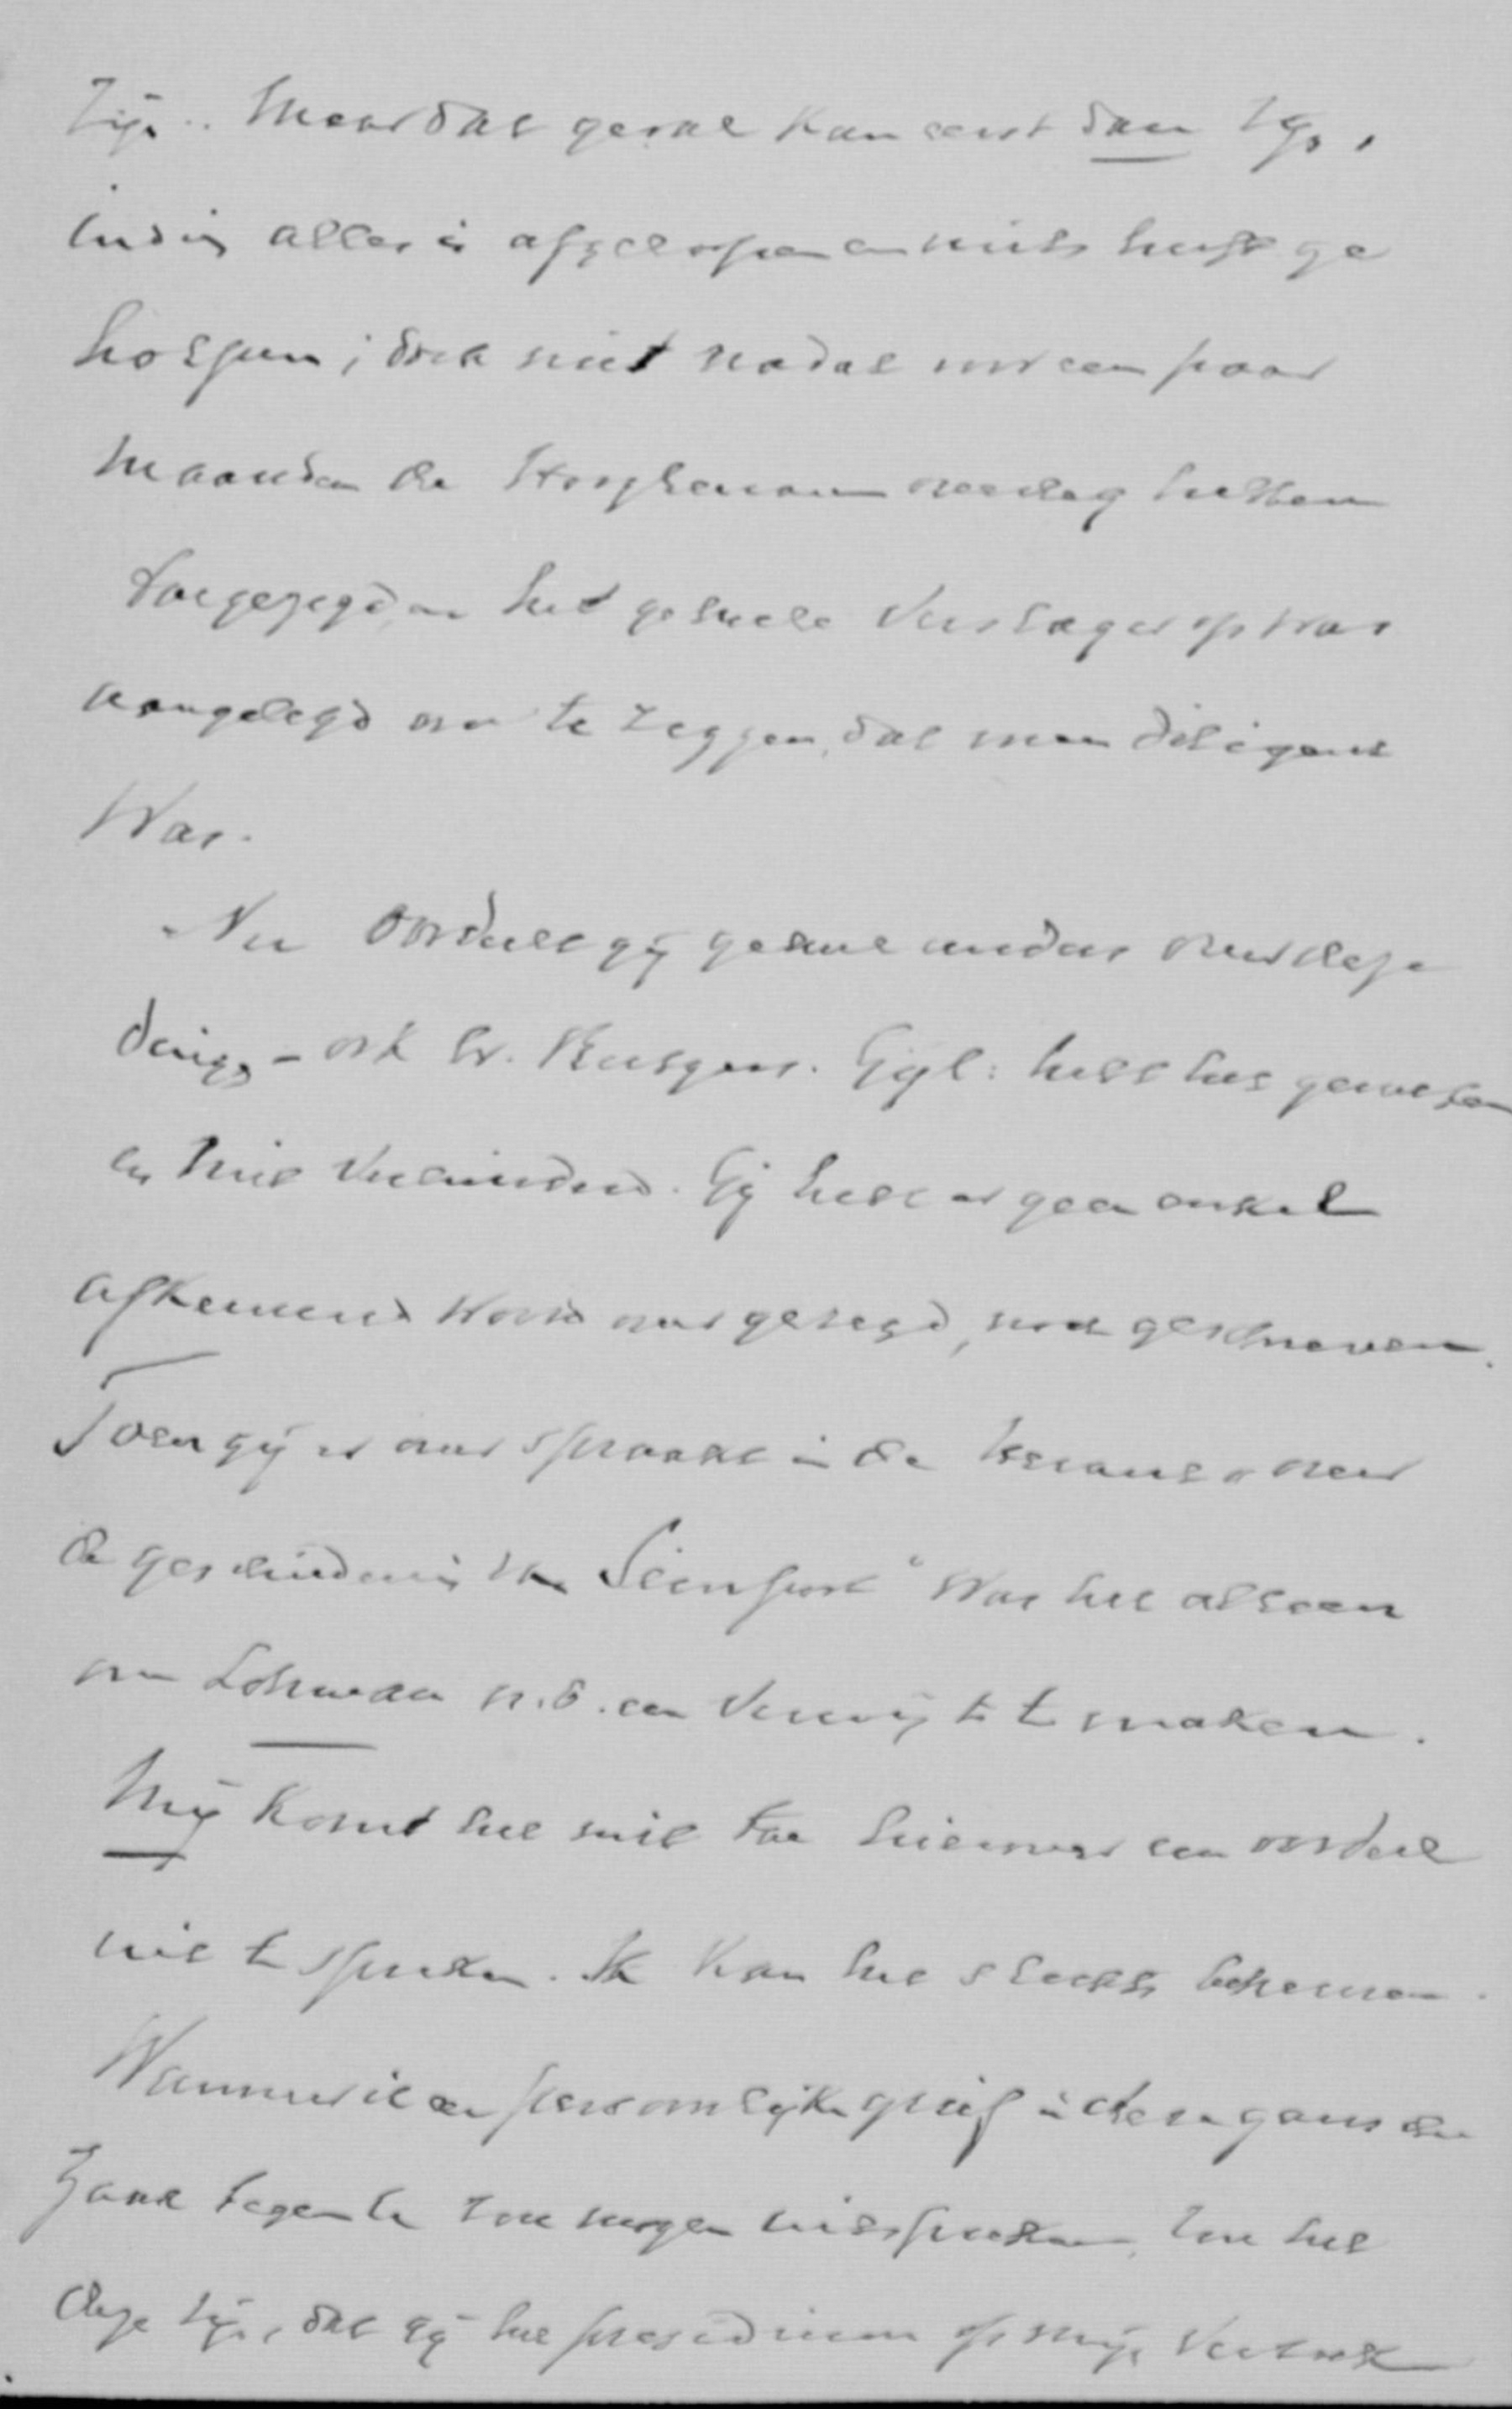 zijn.. Maar dat geval kan eerst dan zijn,
indien alles is afgeloopen en niets heeft ge
holpen; doch niet nadat voor een paar
maanden de Hoogleeraren overleg hebben
toegezegd, en het geheele Verslag er op was
aangelegd om te zeggen, dat men diligent
was.
Nu oordeelt gij geheel anders over deze
dingen - ook br. Rutgers. Gijl: hebt het geweten
en niet verhinderd. Gij hebt er geen enkel
afkeurend woord over gezegd, noch geschreven.
Toen gij er over spraakt in de
de geschiedenis van Seinpost" was het alleen
om Lohman n.b. een verwijt te maken.
Mij komt het niet toe hierover een oordeel
uit te spreken. Ik kan het slechts betreuren.
Wanneer ik een persoonlijke grief in deze gansche
zaak tegen U zou mogen uitspreken, zou het
deze zijn, dat gij het presidium op mijn vertrek